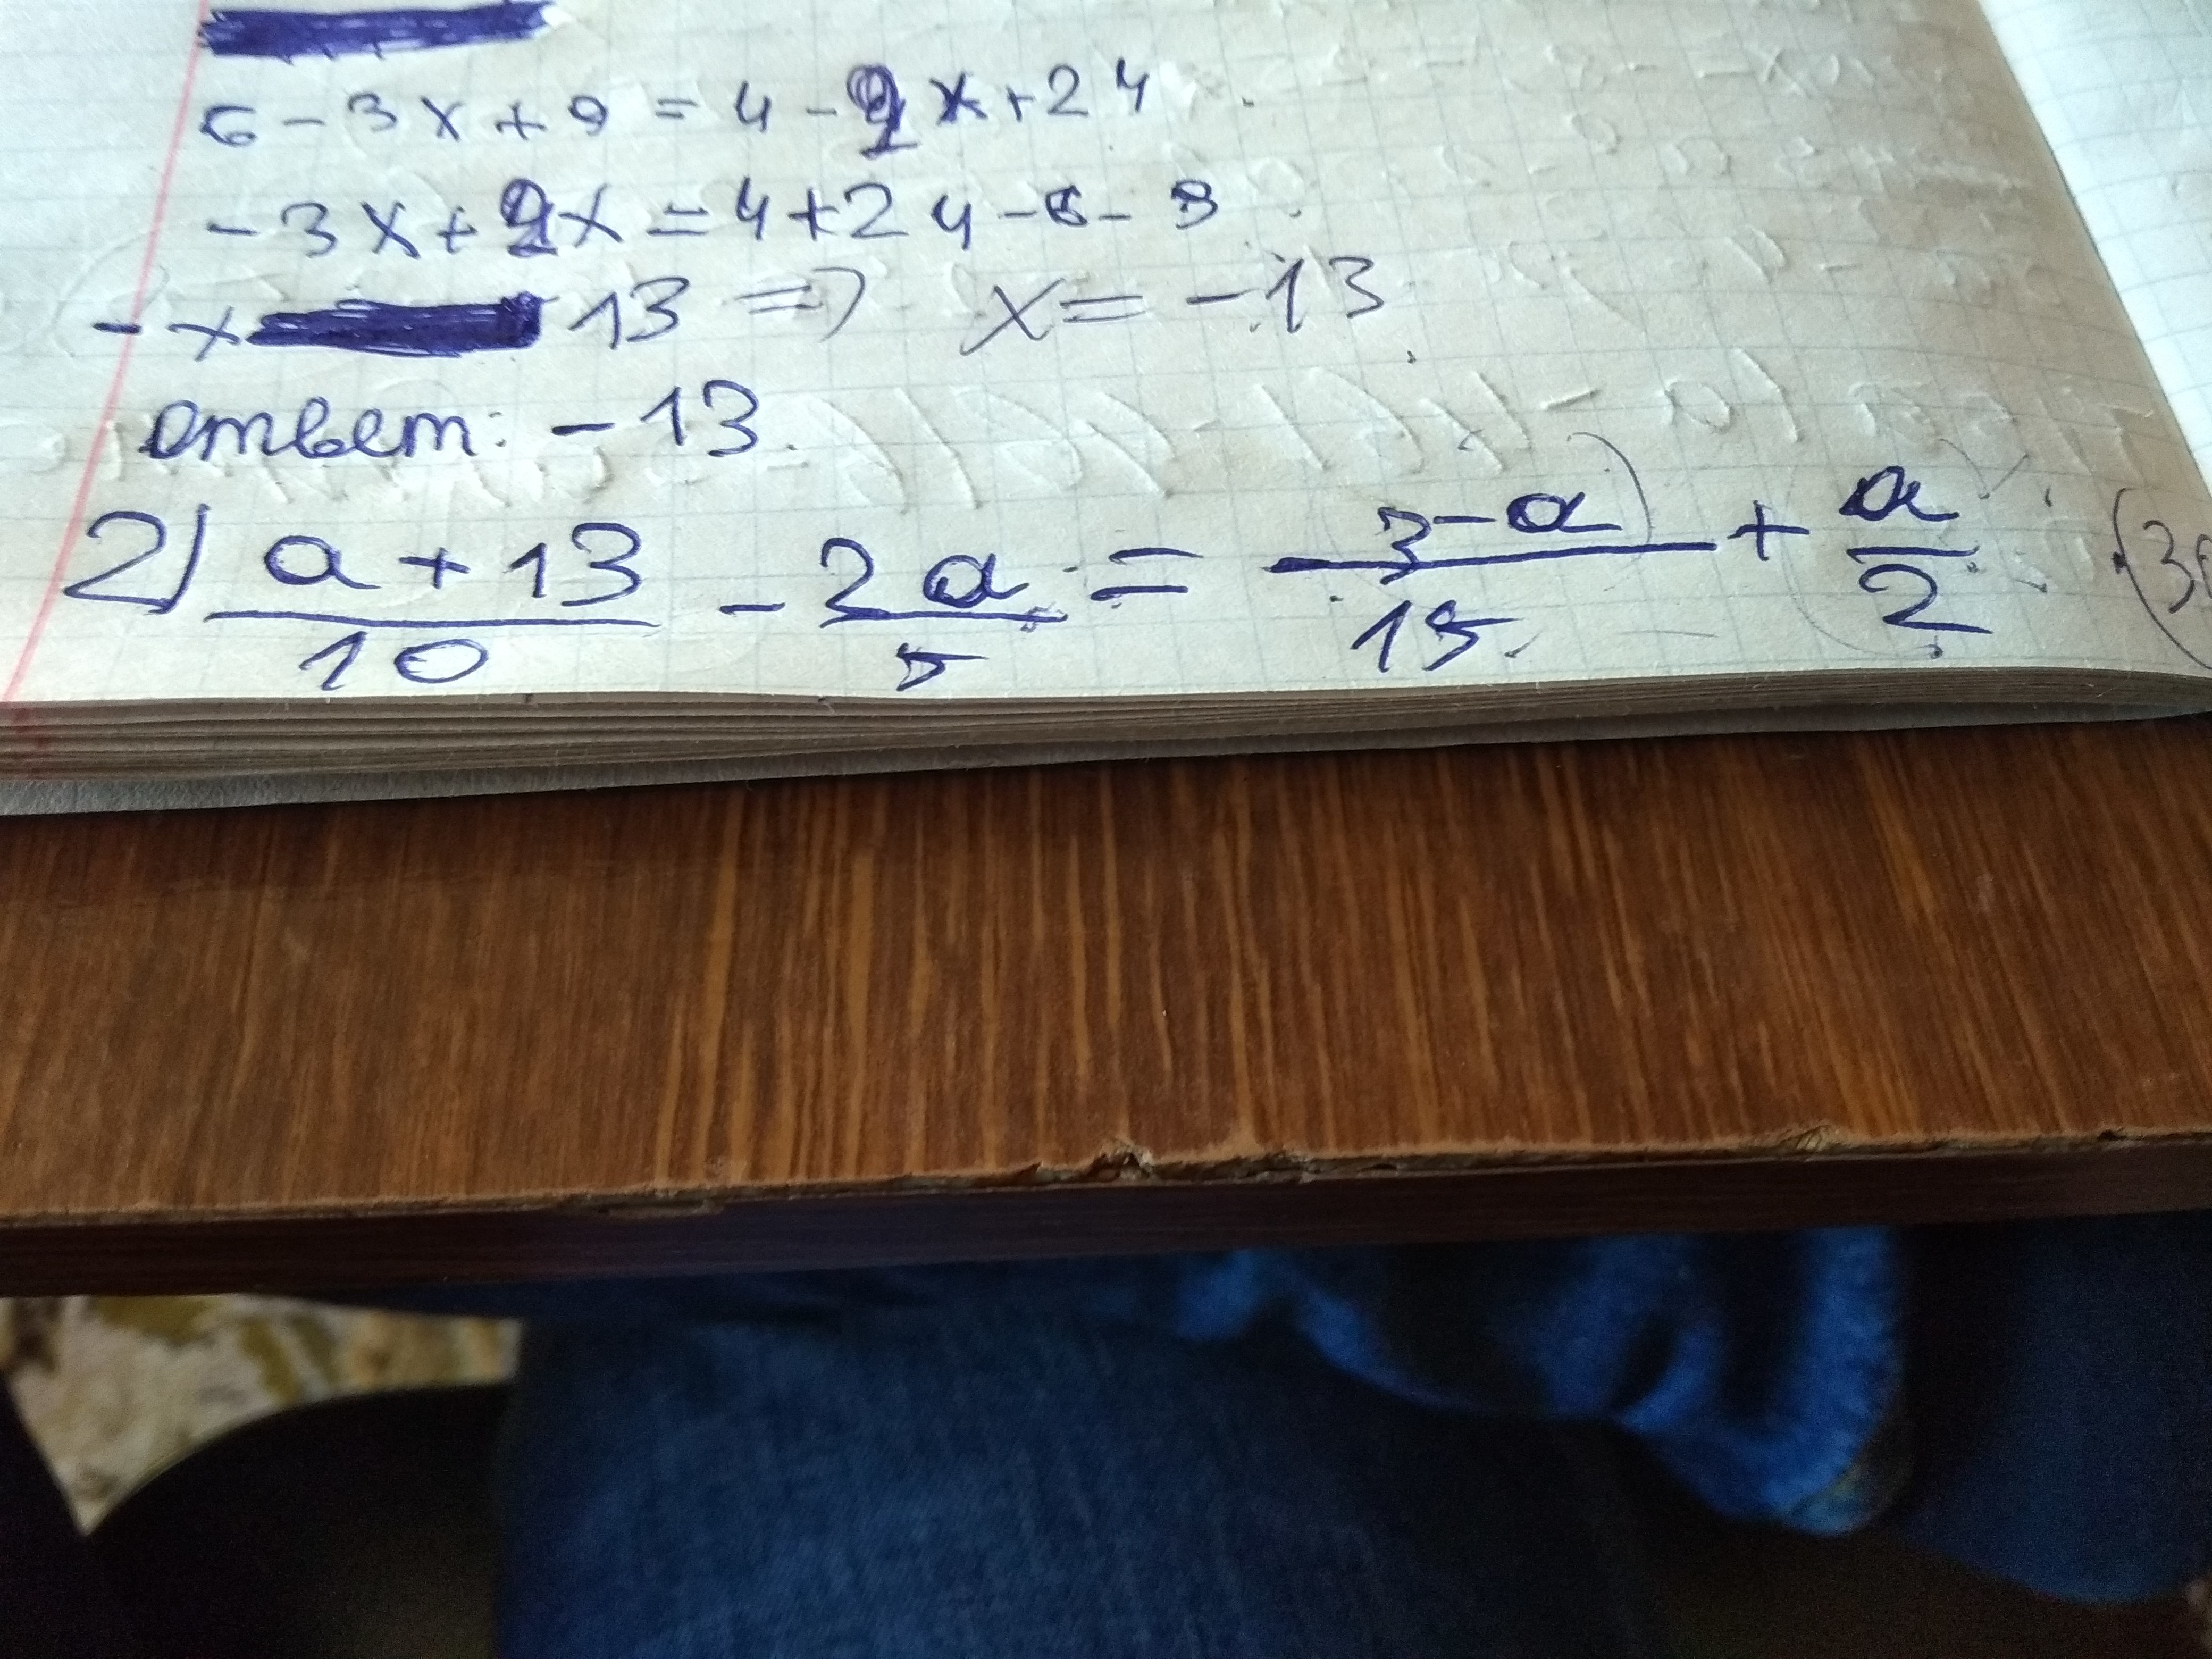 6 - 3x + 9 = 4 - 2x + 24
- 3x + 2x = 4 + 24 - 6 - 9
- x 13 => x = - 13
ответ: - 13.
2) (a + 13)/10 - 2a/5 = (3 - a)/15 + a/2 (30